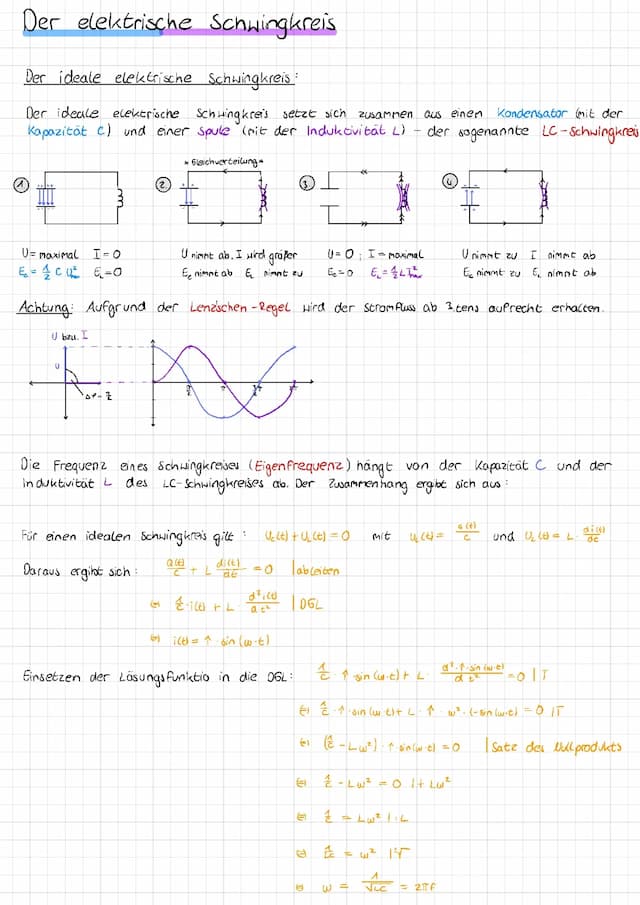 Der elektrische Schwingkreis
Der ideale elektrische Schwingkreis:
Der ideale elektrische Schwingkreis setzt sich zusammen aus einen Kondensator (mit der
Kapazität C) und einer Spule (mit der Induktivität L) – der sogenannte LC-Schwingkreis
* Gleichverteilung *
1 2 3 4
U = maximal I = 0
U nimmt ab, I wird größer
U = 0 ; I = maximal
U nimmt zu I nimmt ab
E_C = 1/2 C U² E_L = 0
E_C nimmt ab E_L nimmt zu
E_C = 0 E_L = 1/2 L I²
E_C nimmt zu E_L nimmt ab
Achtung: Aufgrund der Lenzschen-Regel wird der Stromfluss ab 3.tens aufrecht erhalten.
U bzw. I
U
Δφ = π/2
π/2 π 3/2π 2π
Die Frequenz eines Schwingkreises (Eigenfrequenz) hängt von der Kapazität C und der
Induktivität L des LC-Schwingkreises ab. Der Zusammenhang ergibt sich aus:
Für einen idealen Schwingkreis gilt: U_C(t) + U_L(t) = 0 mit U_C(t) = Q(t)/C und U_L(t) = L · di(t)/dt
Daraus ergibt sich: Q(t)/C + L di(t)/dt = 0 | ableiten
⇔ 1/C · i(t) + L d²i(t)/dt² | DGL
⇔ i(t) = î · sin(ω·t)
Einsetzen der Lösungsfunktio in die DGL: 1/C · î · sin(ω·t) + L · d²·î·sin(ω·t)/dt² = 0 | T
⇔ 1/C · î · sin(ω·t) + L · î · ω² · (-sin(ω·t) = 0 | T
⇔ (1/C - Lω²) · î sin(ω·t) = 0 | Satz des Nullprodukts
⇔ 1/C - Lω² = 0 | + Lω²
⇔ 1/C = Lω² | : L
⇔ 1/LC = ω² | √
⇔ ω = 1/√LC = 2πf